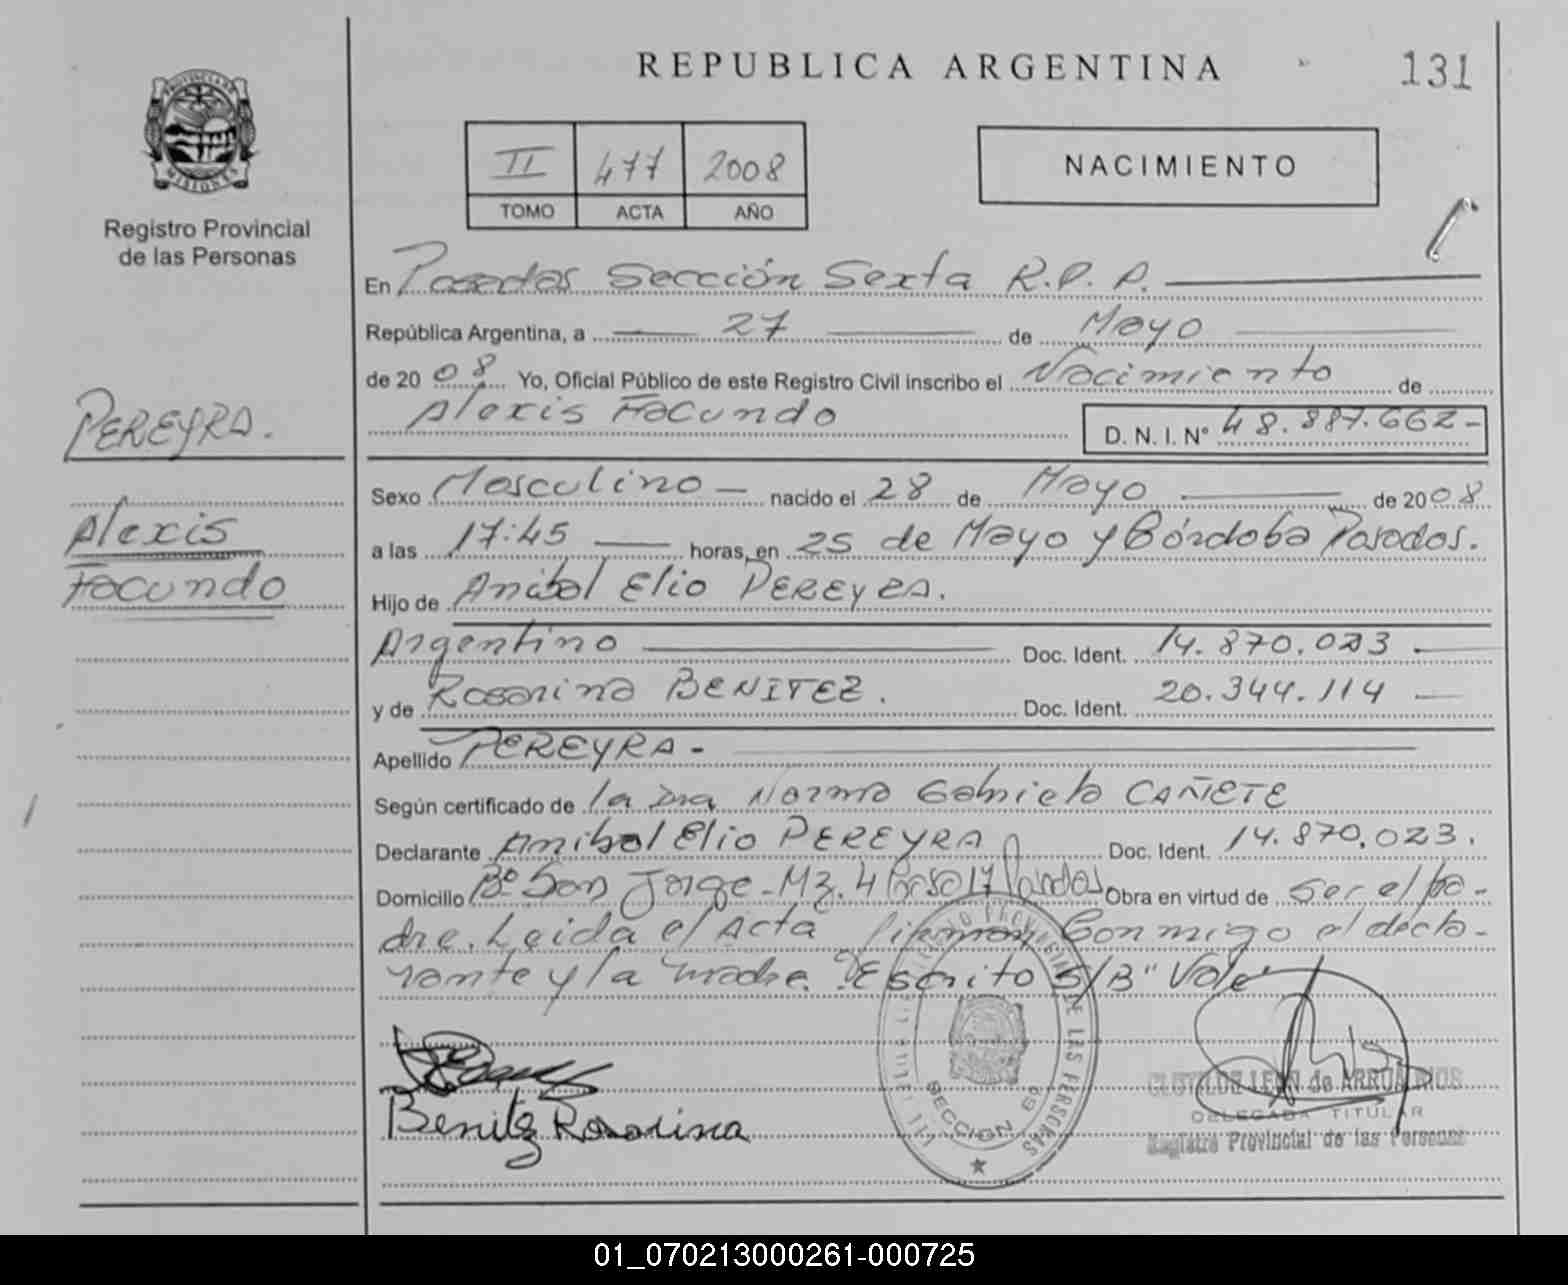 REPUBLICA ARGENTINA
131
PROVINCIA DE
MISIONES
Registro Provincial
de las Personas
II 477 2008
TOMO ACTA AÑO
NACIMIENTO
En Posadas Sección Sexta R.P.P.
República Argentina, a 27 de Mayo
de 2008 Yo, Oficial Público de este Registro Civil inscribo el Nacimiento de
Alexis Facundo D. N. I. Nº 48.887.662-
PEREYRA.
Alexis
Facundo
Sexo Masculino - nacido el 28 de Mayo de 2008
a las 17:45 horas, en 25 de Mayo y Córdoba Posadas.
Hijo de Anibal Elio PEREYRA.
Argentino Doc. Ident. 14.870.023
y de Rosarina BENITEZ. Doc. Ident. 20.344.114
Apellido PEREYRA-
Según certificado de la Dra Norma Gabriela CAÑETE
Declarante Anibal Elio PEREYRA Doc. Ident. 14.870.023.
Domicilio Bº San Jorge-Mz.4 17 Posadas Obra en virtud de Ser el pa-
dre. Leida el Acta firman Conmigo el decla-
rante y la madre. "Escrito S/B" Vale
Benitez Rosarina
DE LAS PERSONAS
SECCION 6º
CLOTILDE LEON de ARRUA RIOS
DELEGADA TITULAR
Registro Provincial de las Personas
01_070213000261-000725